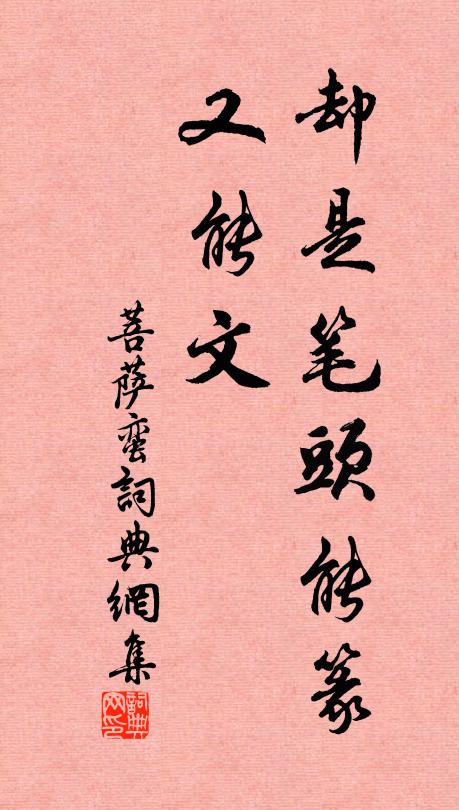 却是笔頭能篆
又能文
菩薩蛮詞典網集
詞典网印